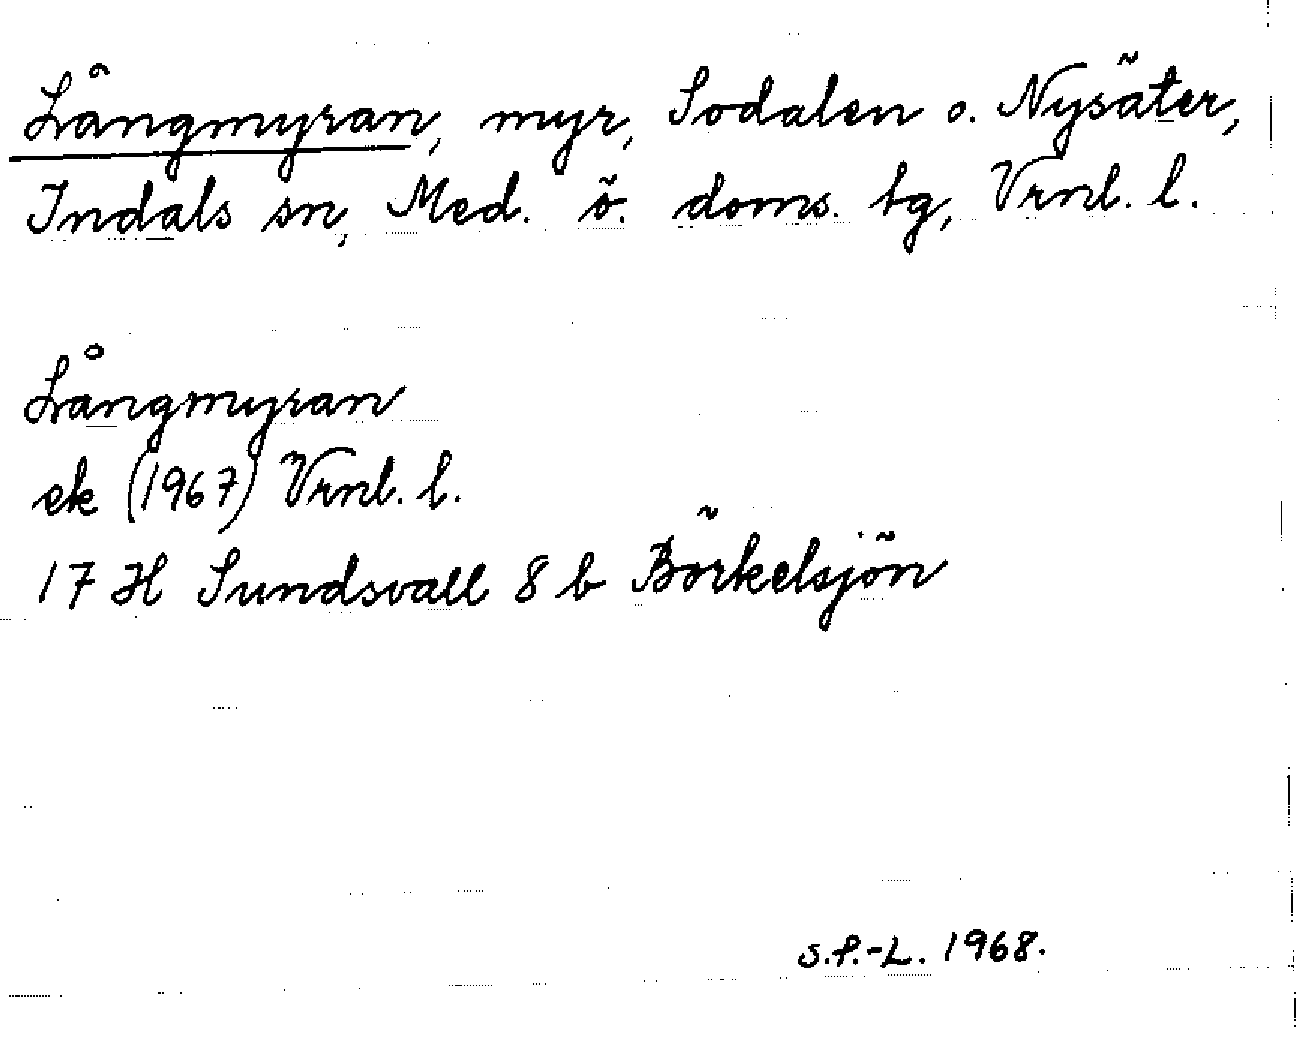 Långmyran, myr, Sodalen o. Nysäter,
Indals sn, Med. ö. doms. tg, Vrnl. l.
Långmyran
ek (1967) Vrnl. l.
17 H Sundsvall 8 b Börkelsjön
S.P.-L. 1968.